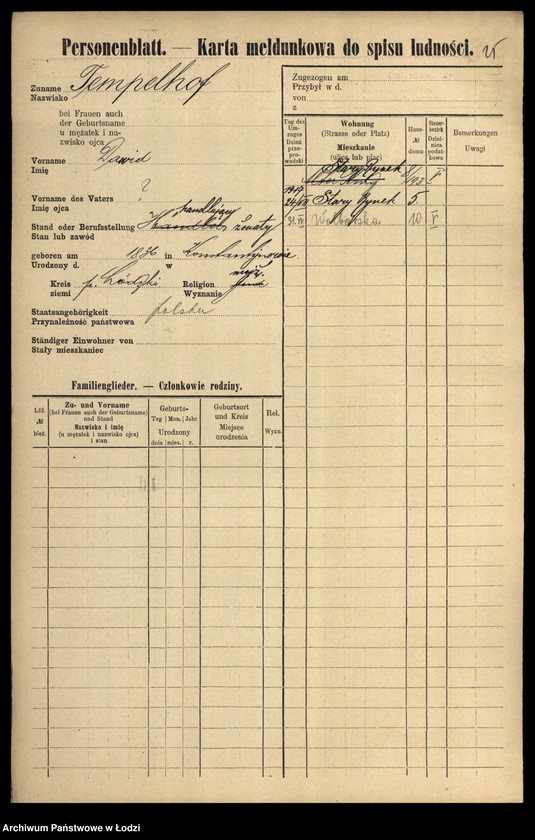 Personenblatt. — Karta meldunkowa do spisu ludności.
Zuname
Nazwisko
Tempelhof
bei Frauen auch
der Geburtsname
u mężatek i na-
zwisko ojca
Vorname
Imię
Dawid
Vorname des Vaters
Imię ojca
?
Stand oder Berufsstellung
Stan lub zawód
handlujący
żonaty
geboren am 1836 in Konstantynowie
Urodzony d. w
Kreis
ziemi
p. Łódzki
Religion
Wyznanie
mojż.
Staatsangehörigkeit
Przynależność państwowa
polska
Ständiger Einwohner von
Stały mieszkaniec
Zugezogen am
Przybył w d.
von
z
Tag des Um-zuges Dzień prze-prowadzki
Wohnung
(Strasse oder Platz)
Mieszkanie
(ulica lub plac)
Haus-
№
domu
Steuer-
bezirk
Dzielnica
podatkowa
Bemerkungen
Uwagi
Stary Rynek
V
1917
Stary Rynek 5
Wolborska 10 V
Familienglieder. — Członkowie rodziny.
Lfd.
№
bież.
Zu- und Vorname
(bei Frauen auch der Geburtsname)
und Stand
Nazwisko i imię
(u mężatek i nazwisko ojca)
i stan
Geburts-
Tag | Mon. | Jahr
Urodzony
dnia | mies. | r.
Geburtsort
und Kreis
Miejsce
urodzenia
Rel.
Wyzn.
Archiwum Państwowe w Łodzi